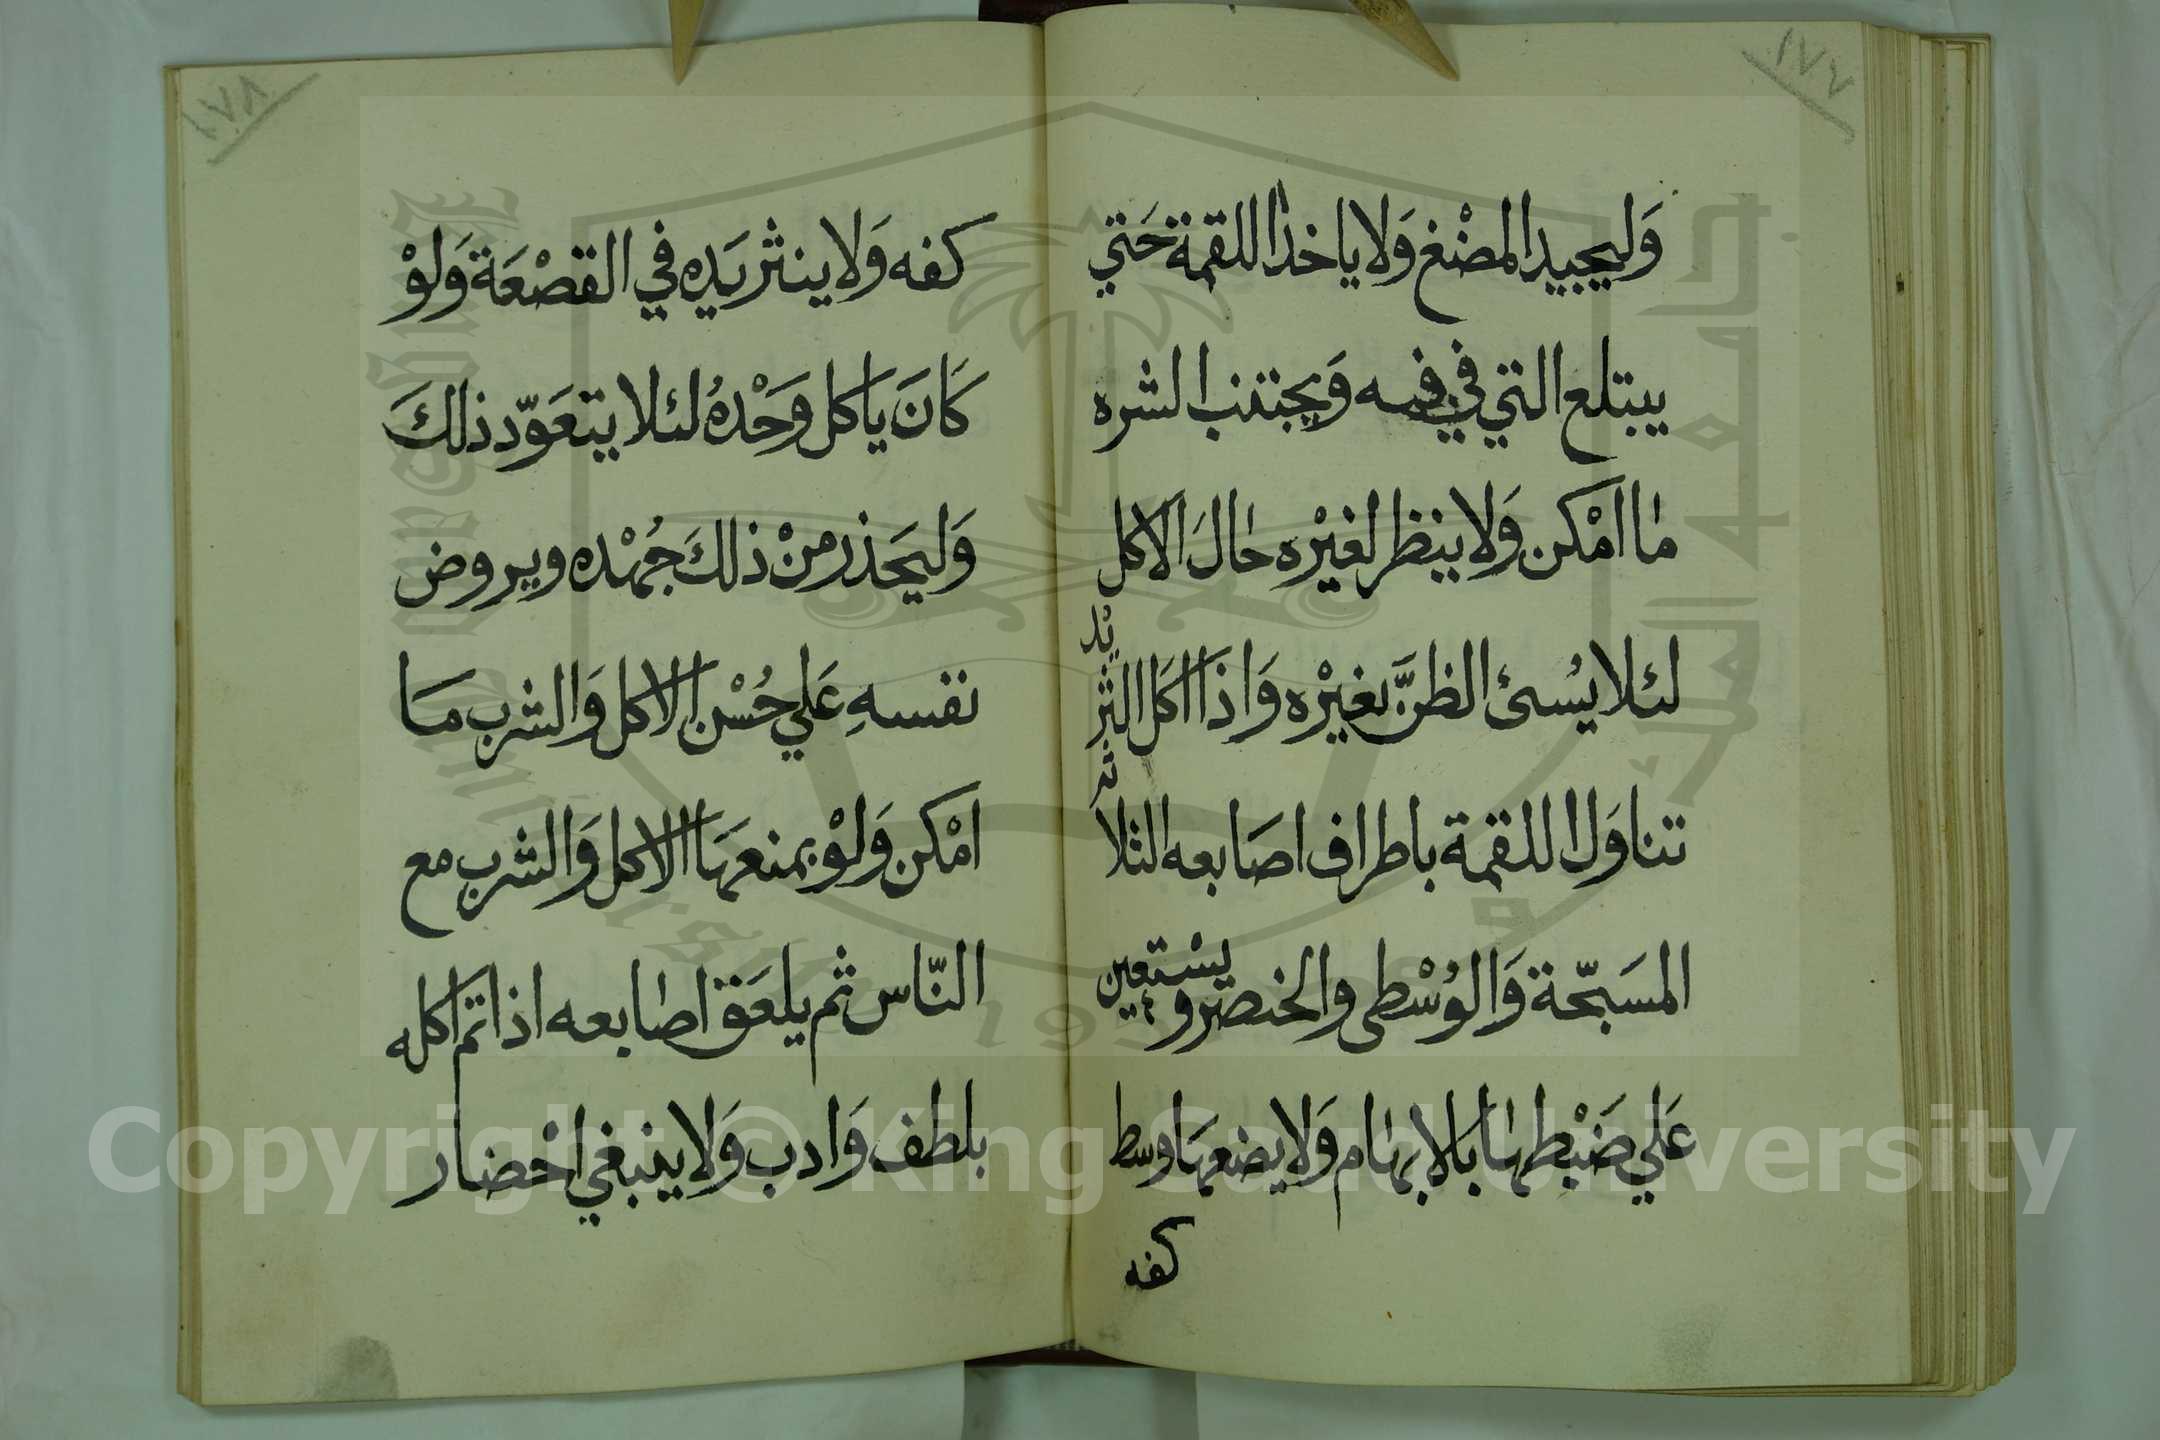 ١٧٧
وَليجيد المضْغ وَلا ياخذ اللقمة حَتي
يبتلع التي في فيه وَيجتنب الشره
ما امْكن وَلا ينظر لغيْره حال الاكل
لئلا يسُئ الظنَّ بغيْره وَاذَا اكل الثريد
تناوَل اللقمة باطراف اصَابعه الثلاثه
المسَبّحة وَالوُسْطى والخنصر ويسْتعين
عَلي ضَبْطها بالابهام وَلا يضعها وسط
كفه
١٧٨
كفه وَلا ينثر يَده في القصْعَة وَلوْ
كَانَ ياكل وَحْدهُ لئلا يتعَوّد ذلكَ
وَليحَذر منْ ذلكَ جُهْده ويروض
نفسهِ عَلي حُسْن الاكل وَالشرب مَا
امْكن وَلوْ بمنعهَا الاكل وَالشرب مع
النّاس ثم يلعَق اصابعه اذا تم اكله
بلطف وَادب وَلا ينبغي احْضار
جامعة الملك سعود
King Saud University
1957
Copyright © King Saud University